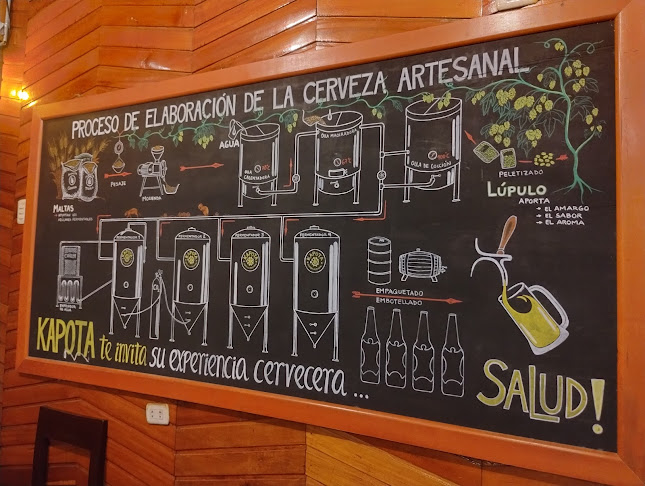 PROCESO DE ELABORACIÓN DE LA CERVEZA ARTESANAL
MALTAS
PESAJE
MOLIENDA
AGUA
OLLA
CALENTADORA
OLLA MACERADORA
OLLA DE COCCIÓN
PELETIZADO
LÚPULO
APORTA
→ EL AMARGO
→ EL SABOR
→ EL AROMA
FERMENTADOR 1
FERMENTADOR 2
FERMENTADOR 3
FERMENTADOR 4
KAPOTA
KAPOTA
KAPOTA
EMPAQUETADO
EMBOTELLADO
KAPOTA te invita su experiencia cervecera ...
SALUD!